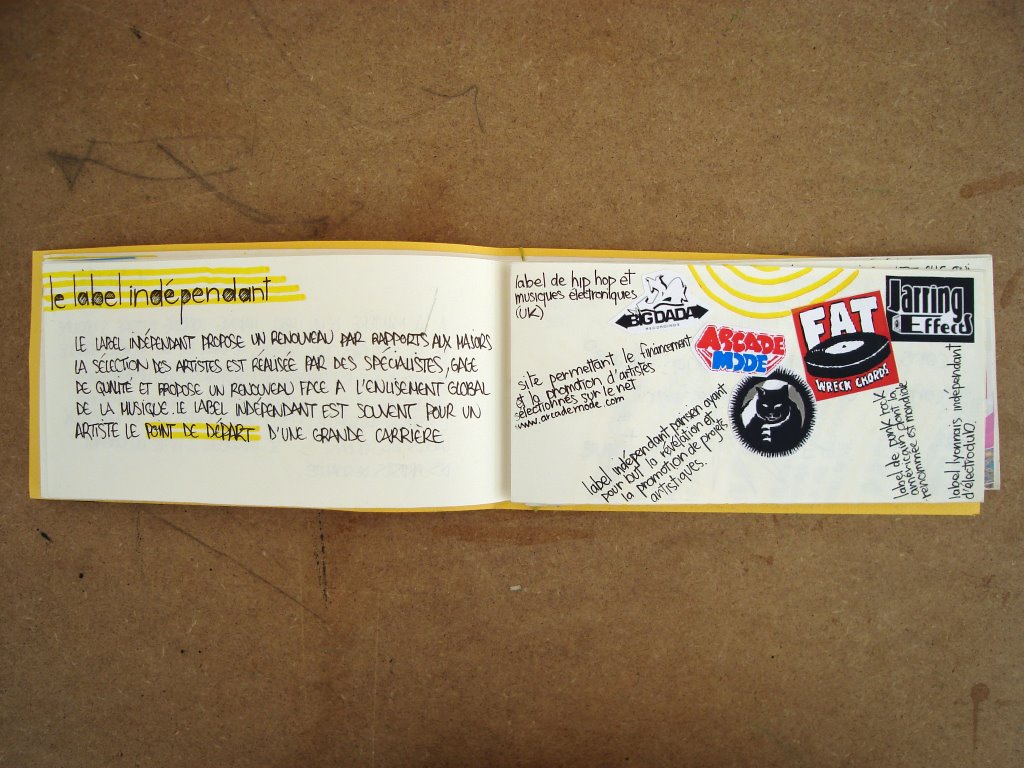 le label indépendant
LE LABEL INDÉPENDANT PROPOSE UN RENOUVEAU PAR RAPPORTS AUX MAJORS
LA SÉLECTION DES ARTISTES EST RÉALISÉE PAR DES SPÉCIALISTES, GAGE
DE QUALITÉ ET PROPOSE UN RENOUVEAU FACE A L'ENLISEMENT GLOBAL
DE LA MUSIQUE. LE LABEL INDÉPENDANT EST SOUVENT POUR UN
ARTISTE LE POINT DE DÉPART D'UNE GRANDE CARRIÈRE
label de hip hop et
musiques électroniques
(UK)
BIG DADA
RECORDINGS
site permettant le financement
et la promotion d'artistes
sélectionnés sur le net
www.arcademode.com
ARCADE
MODE
label indépendant parisien ayant
pour but la révélation et
la promotion de projets
artistiques.
FAT
WRECK CHORDS
label de punk rock
américain dont la
renommée est mondiale
Jarring
Effects
label lyonnais indépendant
d'électrodub.